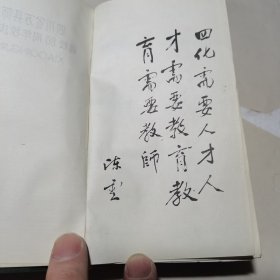 四化需要人才人
才需要教育教
育需要教师
陈云